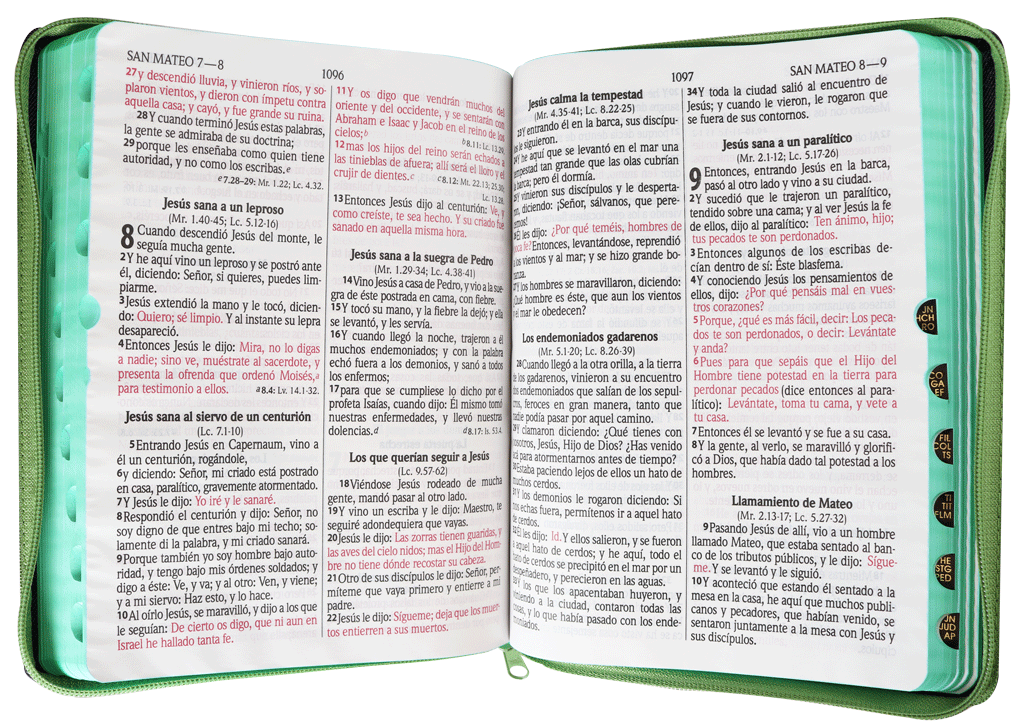 SAN MATEO 7—8
1096
27y descendió lluvia, y vinieron ríos, y so-
plaron vientos, y dieron con ímpetu contra
aquella casa; y cayó, y fue grande su ruina.
28Y cuando terminó Jesús estas palabras,
la gente se admiraba de su doctrina;
29porque les enseñaba como quien tiene
autoridad, y no como los escribas.e
e7.28–29: Mr. 1.22; Lc. 4.32.
Jesús sana a un leproso
(Mr. 1.40-45; Lc. 5.12-16)
8 Cuando descendió Jesús del monte, le
seguía mucha gente.
2Y he aquí vino un leproso y se postró ante
él, diciendo: Señor, si quieres, puedes lim-
piarme.
3Jesús extendió la mano y le tocó, dicien-
do: Quiero; sé limpio. Y al instante su lepra
desapareció.
4Entonces Jesús le dijo: Mira, no lo digas
a nadie; sino ve, muéstrate al sacerdote, y
presenta la ofrenda que ordenó Moisés,a
para testimonio a ellos. a8.4: Lv. 14.1-32.
Jesús sana al siervo de un centurión
(Lc. 7.1-10)
5Entrando Jesús en Capernaum, vino a
él un centurión, rogándole,
6y diciendo: Señor, mi criado está postrado
en casa, paralítico, gravemente atormentado.
7Y Jesús le dijo: Yo iré y le sanaré.
8Respondió el centurión y dijo: Señor, no
soy digno de que entres bajo mi techo; so-
lamente di la palabra, y mi criado sanará.
9Porque también yo soy hombre bajo auto-
ridad, y tengo bajo mis órdenes soldados; y
digo a éste: Ve, y va; y al otro: Ven, y viene;
y a mi siervo: Haz esto, y lo hace.
10Al oírlo Jesús, se maravilló, y dijo a los que
le seguían: De cierto os digo, que ni aun en
Israel he hallado tanta fe.
11Y os digo que vendrán muchos del
oriente y del occidente, y se sentarán con
Abraham e Isaac y Jacob en el reino de los
cielos;b b8.11: Lc. 13.29.
12mas los hijos del reino serán echados a
las tinieblas de afuera; allí será el lloro y el
crujir de dientes.c c8.12: Mt. 22.13; 25.30;
Lc. 13.28.
13Entonces Jesús dijo al centurión: Ve, y
como creíste, te sea hecho. Y su criado fue
sanado en aquella misma hora.
Jesús sana a la suegra de Pedro
(Mr. 1.29-34; Lc. 4.38-41)
14Vino Jesús a casa de Pedro, y vio a la sue-
gra de éste postrada en cama, con fiebre.
15Y tocó su mano, y la fiebre la dejó; y ella
se levantó, y les servía.
16Y cuando llegó la noche, trajeron a él
muchos endemoniados; y con la palabra
echó fuera a los demonios, y sanó a todos
los enfermos;
17para que se cumpliese lo dicho por el
profeta Isaías, cuando dijo: Él mismo tomó
nuestras enfermedades, y llevó nuestras
dolencias.d d8.17: Is. 53.4.
Los que querían seguir a Jesús
(Lc. 9.57-62)
18Viéndose Jesús rodeado de mucha
gente, mandó pasar al otro lado.
19Y vino un escriba y le dijo: Maestro, te
seguiré adondequiera que vayas.
20Jesús le dijo: Las zorras tienen guaridas, y
las aves del cielo nidos; mas el Hijo del Hom-
bre no tiene dónde recostar su cabeza.
21Otro de sus discípulos le dijo: Señor, per-
míteme que vaya primero y entierre a mi
padre.
22Jesús le dijo: Sígueme; deja que los muer-
tos entierren a sus muertos.
1097
SAN MATEO 8—9
Jesús calma la tempestad
(Mr. 4.35-41; Lc. 8.22-25)
23Y entrando él en la barca, sus discípu-
los le siguieron.
24Y he aquí que se levantó en el mar una
tempestad tan grande que las olas cubrían
la barca; pero él dormía.
25Y vinieron sus discípulos y le desperta-
ron, diciendo: ¡Señor, sálvanos, que pere-
cemos!
26Él les dijo: ¿Por qué teméis, hombres de
poca fe? Entonces, levantándose, reprendió
a los vientos y al mar; y se hizo grande bo-
nanza.
27Y los hombres se maravillaron, diciendo:
¿Qué hombre es éste, que aun los vientos
y el mar le obedecen?
Los endemoniados gadarenos
(Mr. 5.1-20; Lc. 8.26-39)
28Cuando llegó a la otra orilla, a la tierra
de los gadarenos, vinieron a su encuentro
dos endemoniados que salían de los sepul-
cros, feroces en gran manera, tanto que
nadie podía pasar por aquel camino.
29Y clamaron diciendo: ¿Qué tienes con
nosotros, Jesús, Hijo de Dios? ¿Has venido
acá para atormentarnos antes de tiempo?
30Estaba paciendo lejos de ellos un hato de
muchos cerdos.
31Y los demonios le rogaron diciendo: Si
nos echas fuera, permítenos ir a aquel hato
de cerdos.
32Él les dijo: Id. Y ellos salieron, y se fueron
a aquel hato de cerdos; y he aquí, todo el
hato de cerdos se precipitó en el mar por un
despeñadero, y perecieron en las aguas.
33Y los que los apacentaban huyeron, y
viniendo a la ciudad, contaron todas las
cosas, y lo que había pasado con los ende-
moniados.
34Y toda la ciudad salió al encuentro de
Jesús; y cuando le vieron, le rogaron que
se fuera de sus contornos.
Jesús sana a un paralítico
(Mr. 2.1-12; Lc. 5.17-26)
9 Entonces, entrando Jesús en la barca,
pasó al otro lado y vino a su ciudad.
2Y sucedió que le trajeron un paralítico,
tendido sobre una cama; y al ver Jesús la fe
de ellos, dijo al paralítico: Ten ánimo, hijo;
tus pecados te son perdonados.
3Entonces algunos de los escribas de-
cían dentro de sí: Éste blasfema.
4Y conociendo Jesús los pensamientos de
ellos, dijo: ¿Por qué pensáis mal en vues-
tros corazones?
5Porque, ¿qué es más fácil, decir: Los peca-
dos te son perdonados, o decir: Levántate
y anda?
6Pues para que sepáis que el Hijo del
Hombre tiene potestad en la tierra para
perdonar pecados (dice entonces al para-
lítico): Levántate, toma tu cama, y vete a
tu casa.
7Entonces él se levantó y se fue a su casa.
8Y la gente, al verlo, se maravilló y glorifi-
có a Dios, que había dado tal potestad a los
hombres.
Llamamiento de Mateo
(Mr. 2.13-17; Lc. 5.27-32)
9Pasando Jesús de allí, vio a un hombre
llamado Mateo, que estaba sentado al ban-
co de los tributos públicos, y le dijo: Sígue-
me. Y se levantó y le siguió.
10Y aconteció que estando él sentado a la
mesa en la casa, he aquí que muchos publi-
canos y pecadores, que habían venido, se
sentaron juntamente a la mesa con Jesús y
sus discípulos.
JN
HCH
RO
CO
GA
EF
FIL
COL
TS
TI
TIT
FLM
HE
STG
PED
JN
JUD
AP